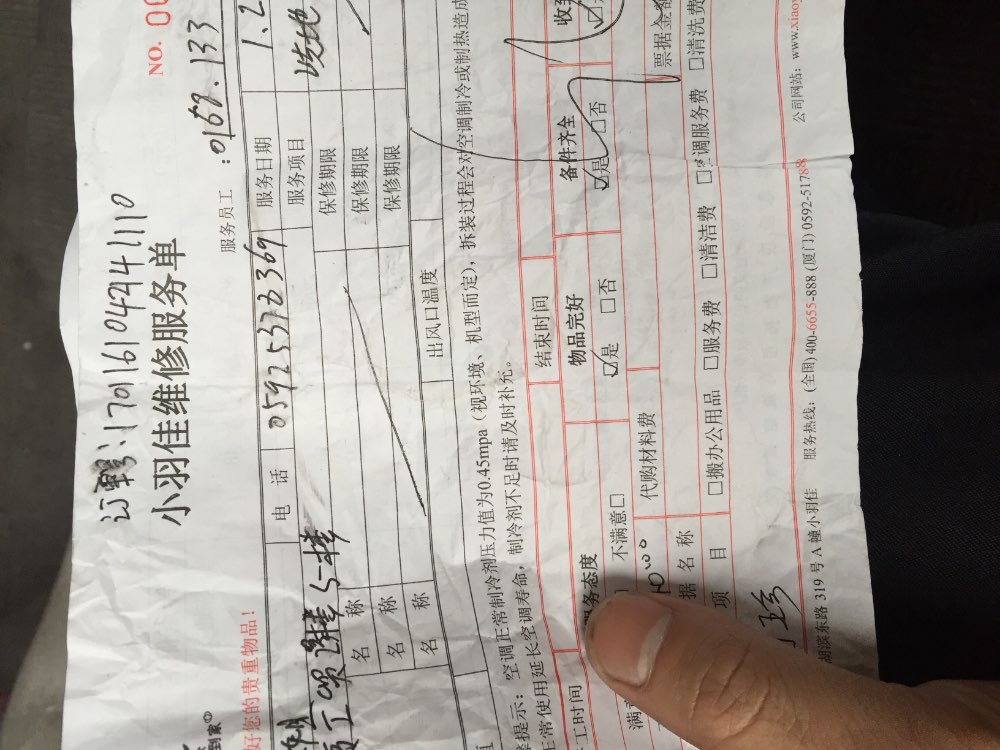 订单号:1701610424110
到家
小羽佳维修服务单
NO. 00
好您的贵重物品!
服务员工:0168.133
电 话 05925373369
服务日期 1.2
5-1楼
服务项目
名 称
保修期限
名 称
保修期限
名 称
保修期限
出风口温度
提示:空调正常制冷剂压力值为0.45mpa(视环境、机型而定),拆装过程会对空调制冷或制热造成
正常使用延长空调寿命,制冷剂不足时请及时补充。
工时间
结束时间
服务态度
物品完好
备件齐全
收
满意
不满意□
☑是 □否
☑是 □否
代购材料费
票据金额
据 名 称
项 目
□搬办公用品 □服务费 □清洁费 □空调服务费 □清洗费
湖滨东路 319 号 A 幢小羽佳 服务热线:(全国) 400-6655-888 (厦门) 0592-51788 公司网站:www.xiaoy